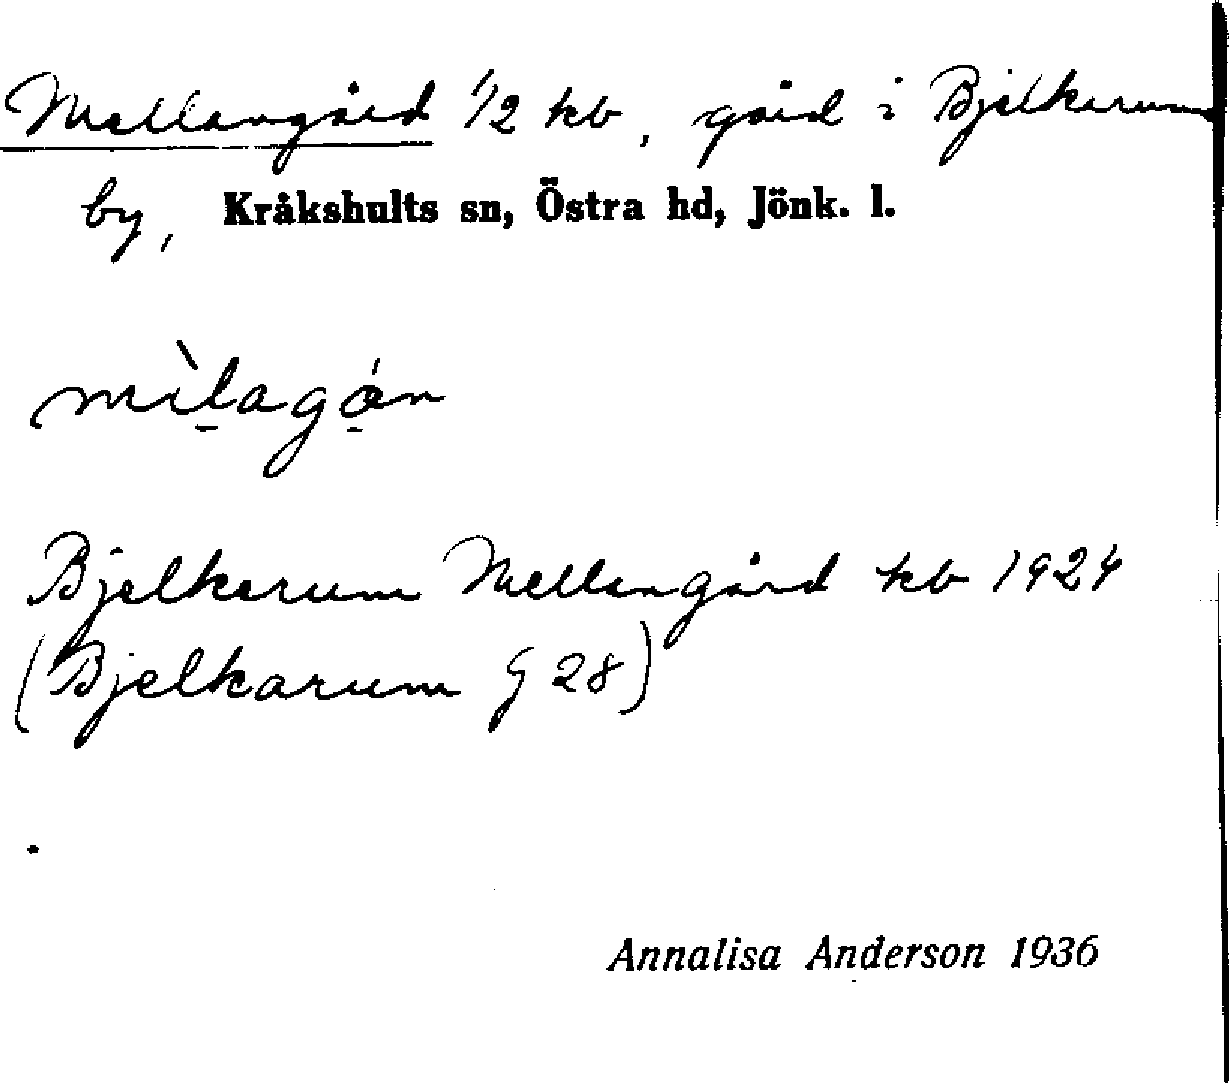 Mellangård 1/2 kb, gård i Bjelkarum
by, Kråkshults sn, Östra hd, Jönk. l.
mìlagán
Bjelkarum Mellangård kb 1924
(Bjelkarum G 28)
Annalisa Anderson 1936